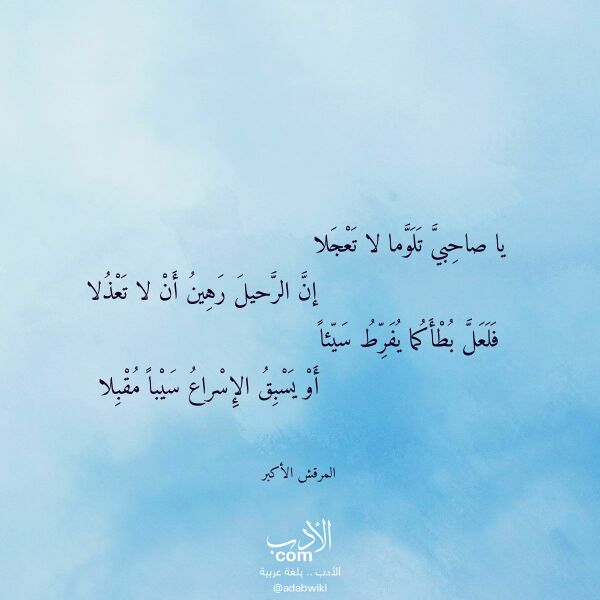 يا صاحِبيَّ تَلَوَّما لا تَعْجَلا
إنَّ الرَّحيلَ رَهِينُ أَنْ لا تَعْذُلا
فَلَعَلَّ بُطْأَكُما يُفَرِّطُ سَيّئاً
أَوْ يَسْبِقُ الإِسْراعُ سَيْباً مُقْبِلا
المرقش الأكبر
الأدب
com
الأدب .. بلغة عربية
@adabwiki